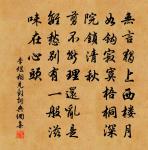 無言獨上西樓月
如鈎寂寞梧桐深
院鎖清秋
剪不斷理還亂是
離愁別有一般滋
味在心頭
李煜相見歡詞